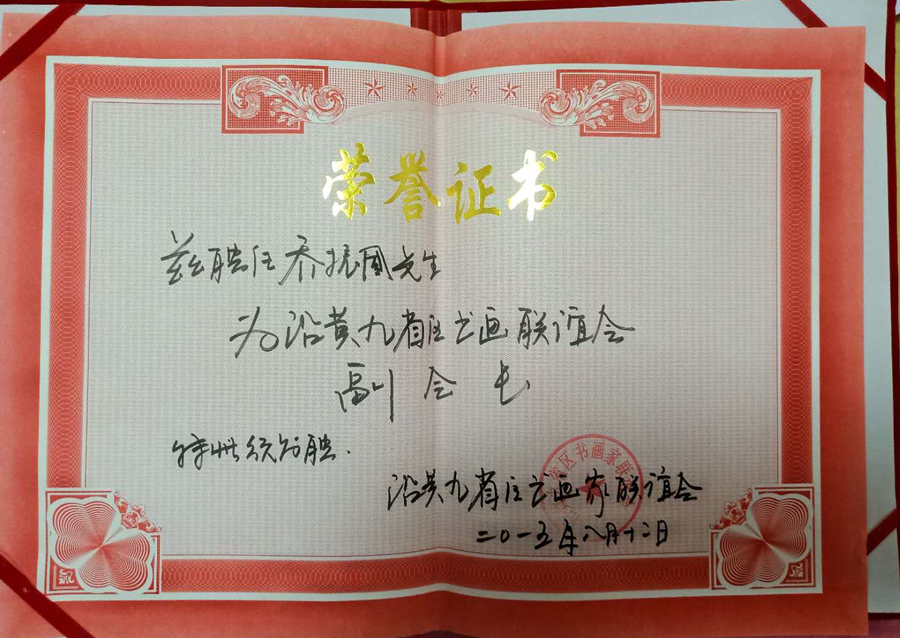 荣誉证书
兹聘任乔振国先生
为沿黄九省区书画联谊会
副会长
特此续聘.
沿黄九省区书画家联谊会
二〇一五年八月十二日
省区书画家联